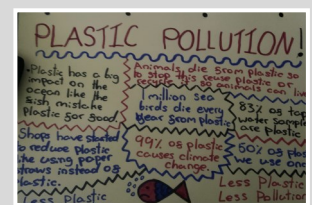 PLASTIC POLLUTION!
•Plastic has a big
impact on the
ocean like the
fish mistake
plastic for food.
Animals, die from plastic so
to stop this reuse plastic or
recycle so animals can live
1 million sea
birds die every
year from plastic
83% of tap
water samples
are plastic
Shops have started
to reduce plastic
like using paper
straws instead of
plastic.
99% of plastic
causes climate
change.
50% of plastic
we use once
Less Plastic
Less Plastic
Less Pollution